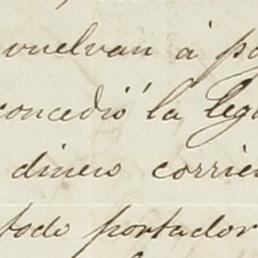 vuelvan á po
concedió la leg
dinero corrien
todo portador